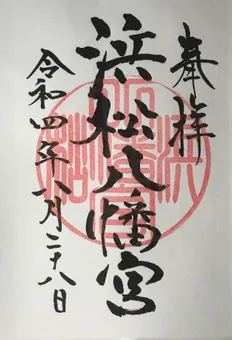 奉拝
浜松八幡宮
令和四年八月二十八日